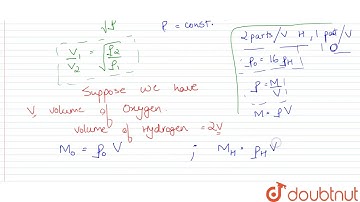 √ρ
P = const.
V₁/V₂ = √(ρ₂/ρ₁)
2 parts/V H, 1 part/V O
ρ₀ = 16 ρH
ρ = M/V
M = ρV
Suppose we have
V volume of Oxygen
volume of Hydrogen = 2V
M₀ = ρ₀ V ; MH = ρH V
doubtnut